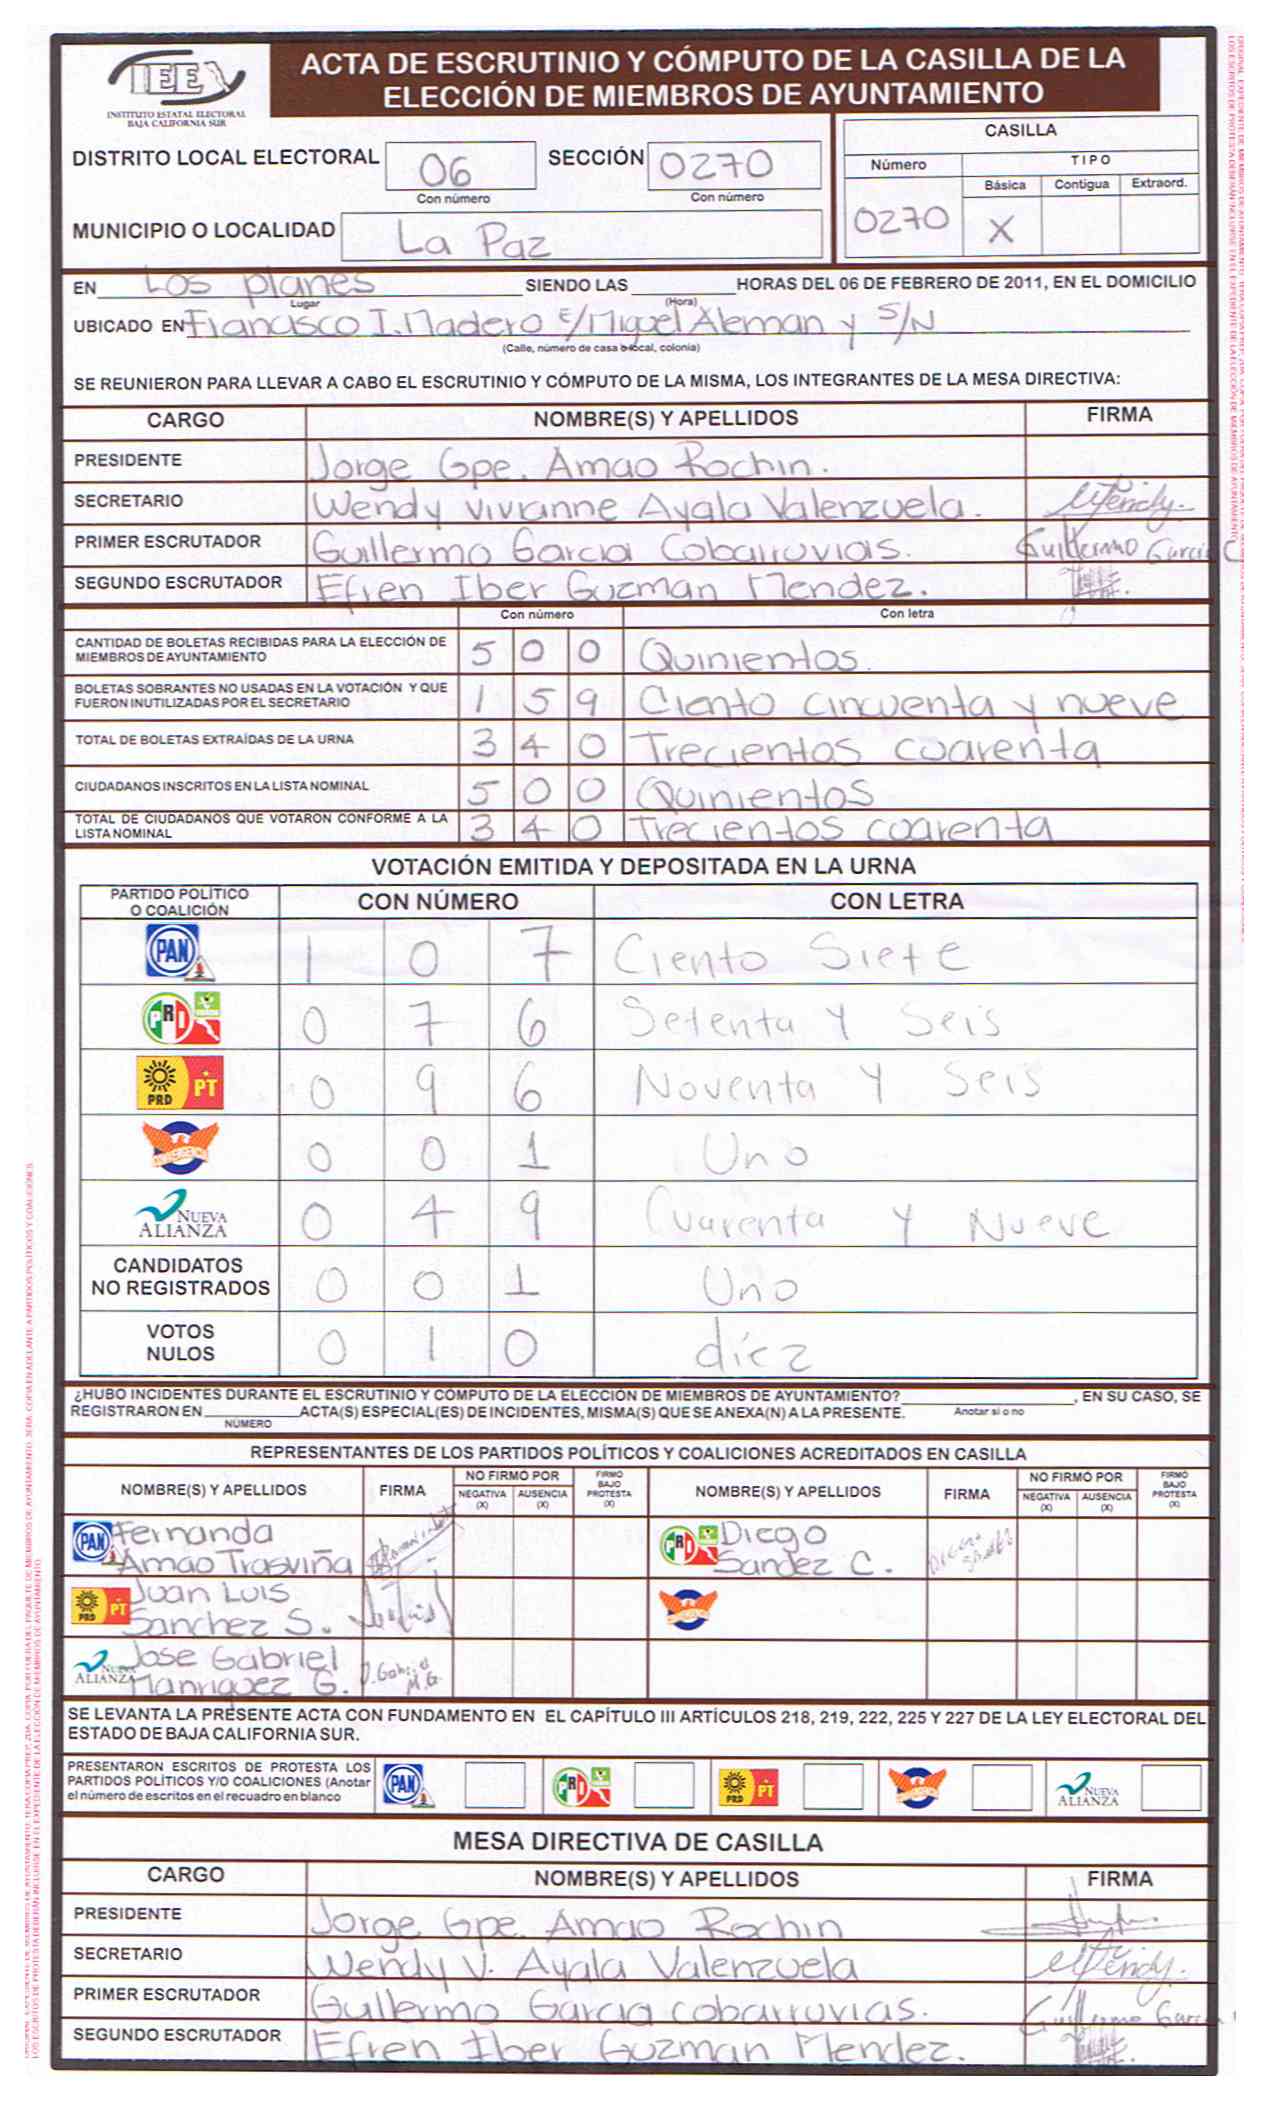 IEE
INSTITUTO ESTATAL ELECTORAL
BAJA CALIFORNIA SUR
ACTA DE ESCRUTINIO Y CÓMPUTO DE LA CASILLA DE LA
ELECCIÓN DE MIEMBROS DE AYUNTAMIENTO
DISTRITO LOCAL ELECTORAL 06 SECCIÓN 0270
Con número Con número
MUNICIPIO O LOCALIDAD La Paz
CASILLA
Número TIPO
Básica Contigua Extraord.
0270 X
EN Los planes SIENDO LAS HORAS DEL 06 DE FEBRERO DE 2011, EN EL DOMICILIO
Lugar (Hora)
UBICADO EN Francisco I. Madero E/Miguel Aleman y S/N
(Calle, número de casa o local, colonia)
SE REUNIERON PARA LLEVAR A CABO EL ESCRUTINIO Y CÓMPUTO DE LA MISMA, LOS INTEGRANTES DE LA MESA DIRECTIVA:
CARGO NOMBRE(S) Y APELLIDOS FIRMA
PRESIDENTE Jorge Gpe. Amao Rochin.
SECRETARIO Wendy Vivianne Ayala Valenzuela. Wendy.
PRIMER ESCRUTADOR Guillermo Garcia Cobarruvias. Guillermo Garcia C
SEGUNDO ESCRUTADOR Efren Iber Guzman Mendez.
Con número Con letra
CANTIDAD DE BOLETAS RECIBIDAS PARA LA ELECCIÓN DE
MIEMBROS DE AYUNTAMIENTO 5 0 0 Quinientos.
BOLETAS SOBRANTES NO USADAS EN LA VOTACIÓN Y QUE
FUERON INUTILIZADAS POR EL SECRETARIO 1 5 9 Ciento cincuenta y nueve
TOTAL DE BOLETAS EXTRAÍDAS DE LA URNA 3 4 0 Trecientos cuarenta
CIUDADANOS INSCRITOS EN LA LISTA NOMINAL 5 0 0 Quinientos
TOTAL DE CIUDADANOS QUE VOTARON CONFORME A LA
LISTA NOMINAL 3 4 0 Trecientos cuarenta
VOTACIÓN EMITIDA Y DEPOSITADA EN LA URNA
PARTIDO POLÍTICO
O COALICIÓN CON NÚMERO CON LETRA
PAN 1 0 7 Ciento Siete
PRI 0 7 6 Setenta y Seis
PRD PT 0 9 6 Noventa y Seis
CONVERGENCIA 0 0 1 Uno
NUEVA ALIANZA 0 4 9 Cuarenta y Nueve
CANDIDATOS
NO REGISTRADOS 0 0 1 Uno
VOTOS
NULOS 0 1 0 diez
¿HUBO INCIDENTES DURANTE EL ESCRUTINIO Y CÓMPUTO DE LA ELECCIÓN DE MIEMBROS DE AYUNTAMIENTO? , EN SU CASO, SE
REGISTRARON EN ACTA(S) ESPECIAL(ES) DE INCIDENTES, MISMA(S) QUE SE ANEXA(N) A LA PRESENTE. Anotar si o no
NÚMERO
REPRESENTANTES DE LOS PARTIDOS POLÍTICOS Y COALICIONES ACREDITADOS EN CASILLA
NOMBRE(S) Y APELLIDOS FIRMA NO FIRMÓ POR NEGATIVA (X) AUSENCIA (X) FIRMÓ BAJO PROTESTA (X) NOMBRE(S) Y APELLIDOS FIRMA NO FIRMÓ POR NEGATIVA (X) AUSENCIA (X) FIRMÓ BAJO PROTESTA (X)
PAN Fernanda PRI Diego
Amao Trasviña Sandez C.
PRD PT Juan Luis
Sanchez S.
NUEVA ALIANZA Jose Gabriel
Manriquez G. J. Gabriel M.G.
SE LEVANTA LA PRESENTE ACTA CON FUNDAMENTO EN EL CAPÍTULO III ARTÍCULOS 218, 219, 222, 225 Y 227 DE LA LEY ELECTORAL DEL
ESTADO DE BAJA CALIFORNIA SUR.
PRESENTARON ESCRITOS DE PROTESTA LOS
PARTIDOS POLÍTICOS Y/O COALICIONES (Anotar
el número de escritos en el recuadro en blanco
PAN PRI PRD PT NUEVA ALIANZA
MESA DIRECTIVA DE CASILLA
CARGO NOMBRE(S) Y APELLIDOS FIRMA
PRESIDENTE Jorge Gpe. Amao Rochin
SECRETARIO Wendy V. Ayala Valenzuela Wendy.
PRIMER ESCRUTADOR Guillermo Garcia cobarruvias. Guillermo Garcia
SEGUNDO ESCRUTADOR Efren Iber Guzman Mendez.